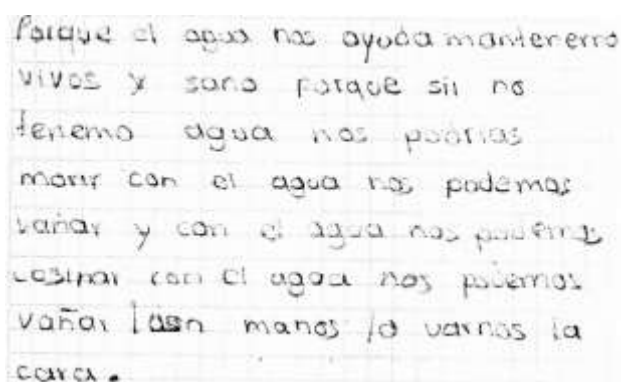 Porque el agua nos ayuda mantenerno
vivos y sano porque sii no
tenemo agua nos podrias
morir con el agua nos podemos
vañar y con el agua nos podemos
cosinar con el agua nos podemos
vañar manos la varnos la
cara.